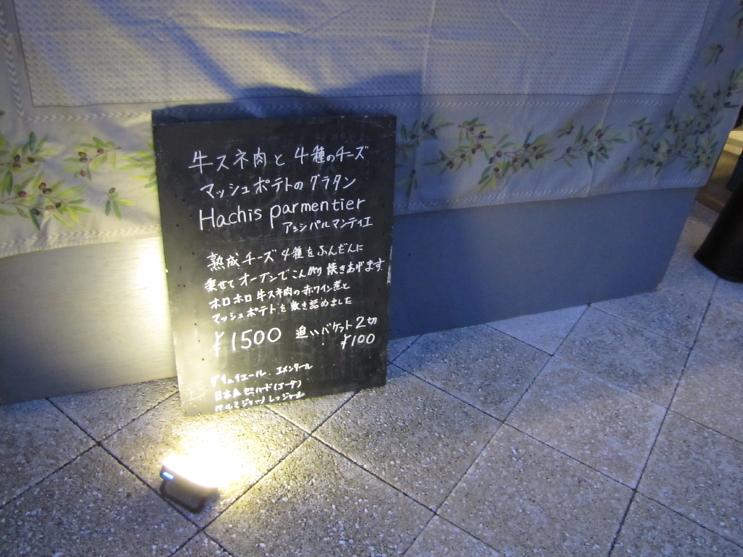 牛スネ肉と4種のチーズ
マッシュポテトのグラタン
Hachis parmentier
アッシパルマンティエ
熟成チーズ4種をふんだんに
乗せてオーブンでこんがり焼きあげます
ホロホロ牛スネ肉の赤ワイン煮と
マッシュポテトを敷き詰めました
¥1500 追いバゲット2切
¥100
グリュイエール、エメンタール